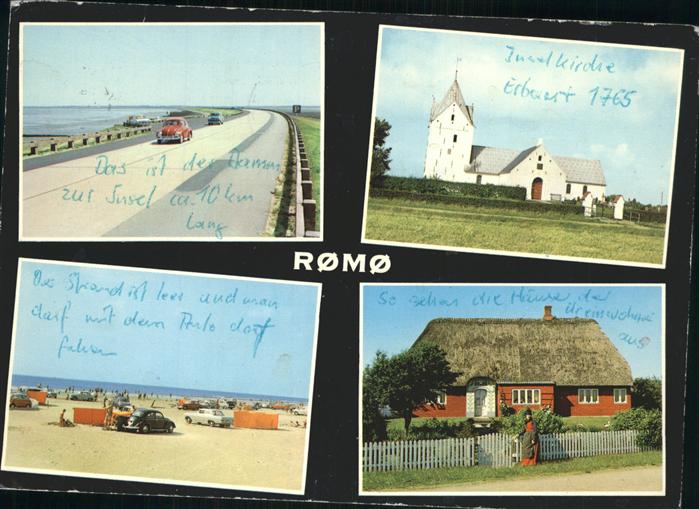 Das ist der Damm
zur Insel ca. 10 km
lang
Inselkirche
Erbaut 1765
RØMØ
Der Strand ist leer und man
darf mit dem Auto dort
fahren
So sehen die Häuser der
aus